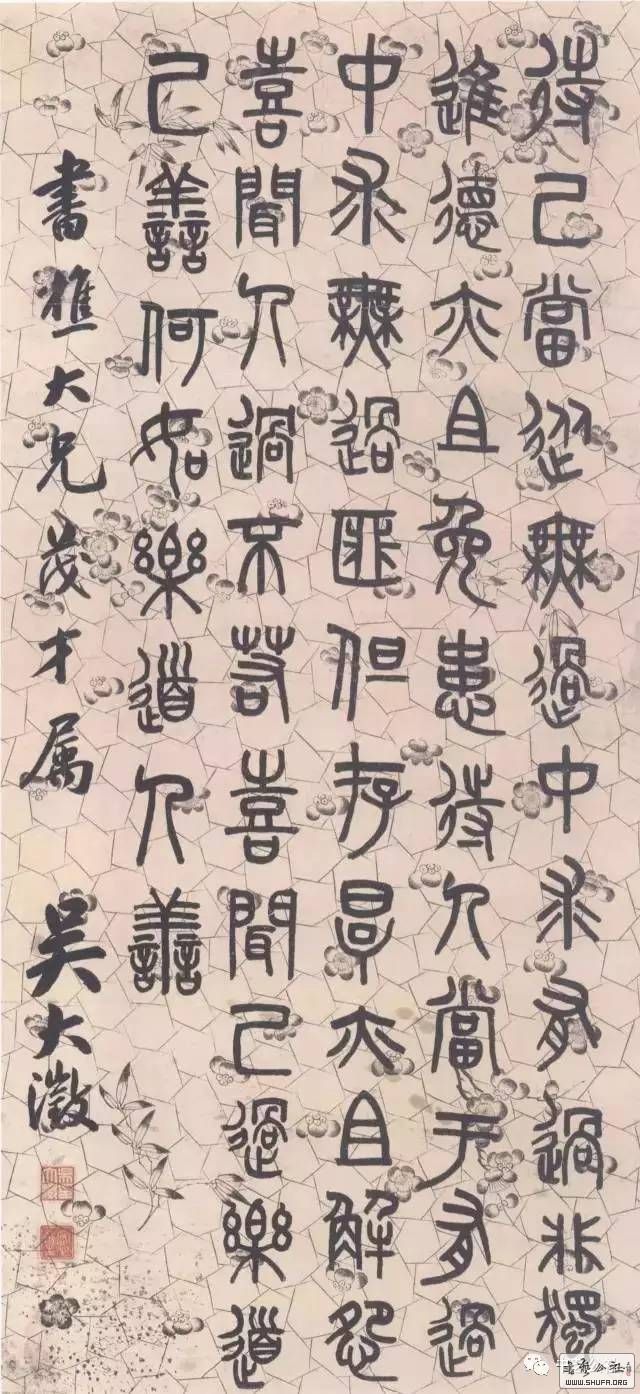 待己當從無過中求有過非獨
進德亦且免患待人當于有過
中求無過匪但存厚亦且解怨
喜聞人過不若喜聞己過樂道
己善何如樂道人善
書樵大兄茂才属 吴大澂
WWW.SHUFA.ORG